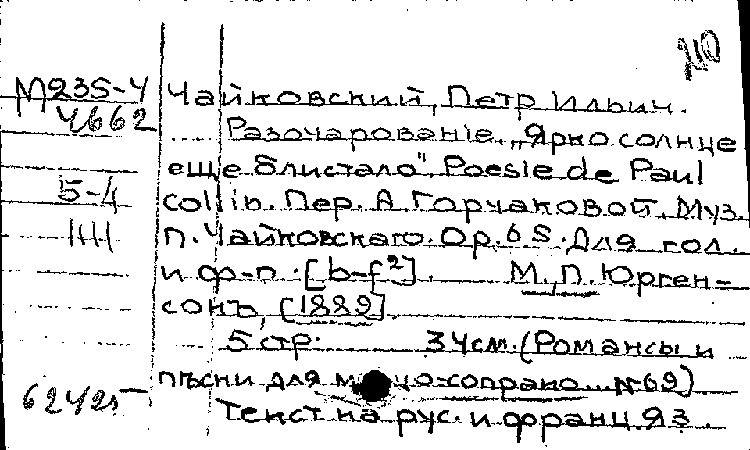 М235-4 Чайковский, Петр Ильич.
4662 Разочарованіе. „Ярко солнце
еще блистало". Poesie de Paul
5-4 Collin. Пер. А. Горчаковой. Муз.
П. Чайковскаго. Ор. 65. Для гол.
и ф-п. [b-f²]. М., П. Юрген-
сонъ, [1889].
5 стр. 34см. (Романсы и
пѣсни для сопрано... №69)
62425- Текст на рус. и франц. яз.